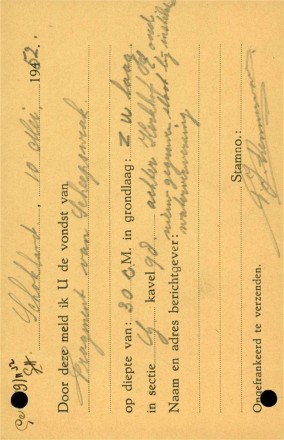 Schokland, 10 Mei 1952.
Door deze meld ik U de vondst van
Fragment van Scheepswrak
op diepte van: 30 c.M. in grondlaag: Z U laag
in sectie G kavel 98.
nieuw gegraven sloot bij
Naam en adres berichtgever:
waterverversing
Stamno.:
Ongefrankeerd te verzenden.